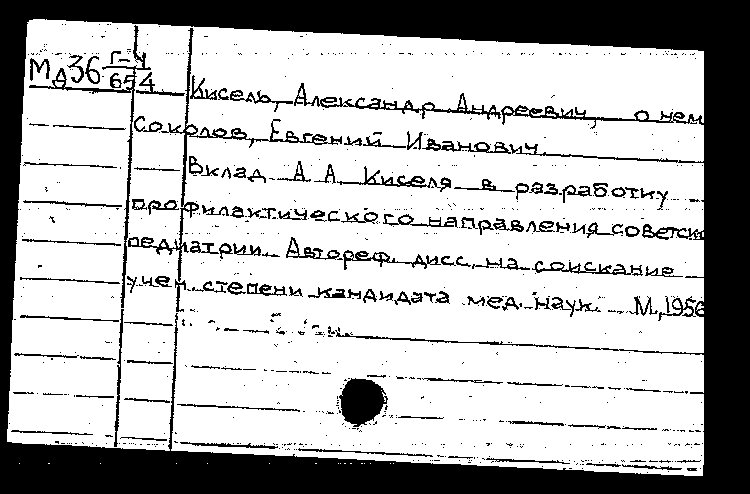 МД36 Г-4
654
Кисель, Александр Андреевич, о нем
Соколов, Евгений Иванович.
Вклад А. А. Киселя в разработку
профилактического направления советск
педиатрии. Автореф. дисс. на соискание
учен. степени кандидата мед. наук. М., 1956